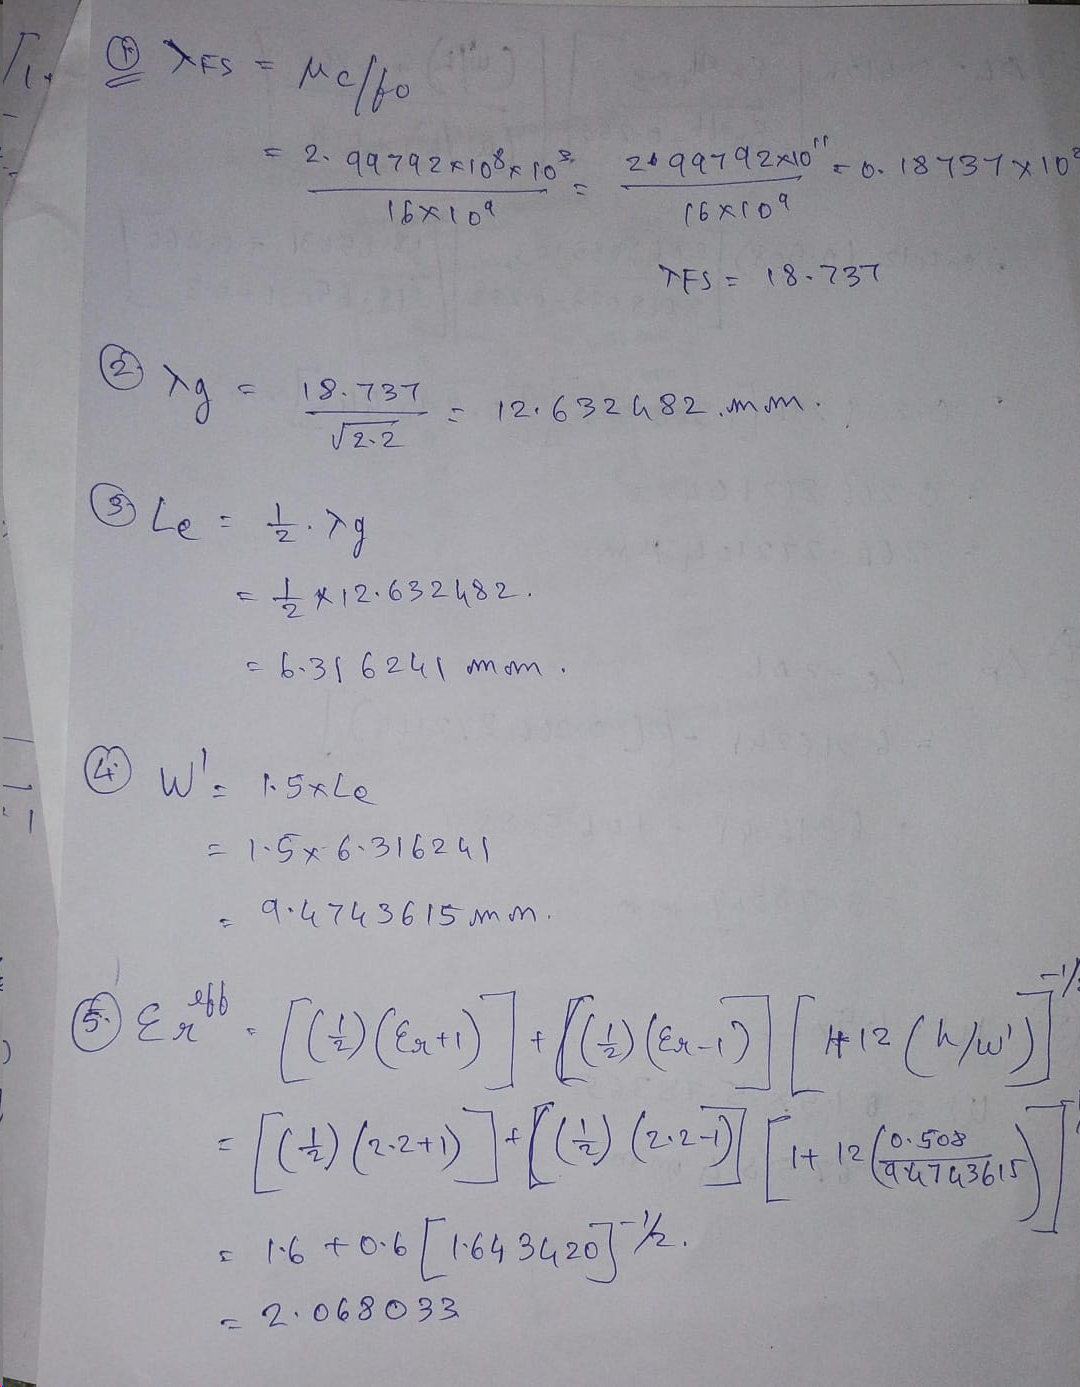 ① λFS = μc/fo
= 2.99792×10⁸×10³ / 16×10⁹ = 2.99792×10¹¹ / 16×10⁹ = 0.18737×10²
λFS = 18.737
② λg = 18.737 / √2.2 = 12.632482 mm.
③ Le = 1/2 . λg
= 1/2 × 12.632482.
= 6.316241 mm.
④ W' = 1.5×Le
= 1.5×6.316241
= 9.4743615 mm.
⑤ Er^eff = [(1/2)(Er+1)] + [(1/2)(Er-1)] [1+12 (h/w')]^-1/2
= [(1/2)(2.2+1)] + [(1/2)(2.2-1)] [1+12 (0.508 / 9.4743615)]
= 1.6 + 0.6 [1.643420]^-1/2.
= 2.068033